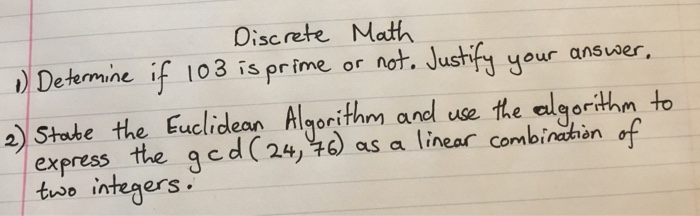 Discrete Math
1) Determine if 103 is prime or not. Justify your answer.
2) State the Euclidean Algorithm and use the algorithm to
express the gcd(24, 76) as a linear combination of
two integers.